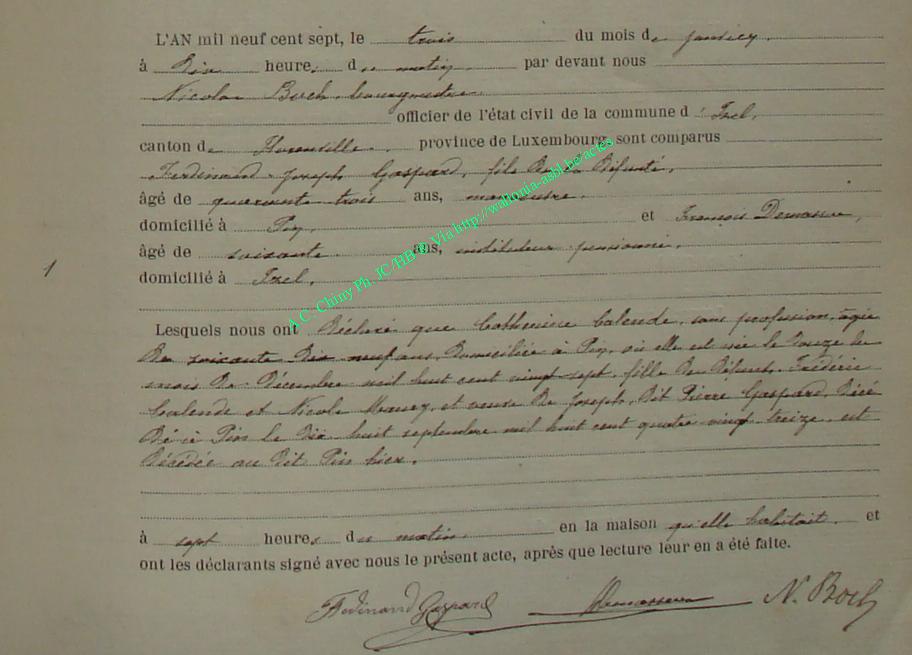 L'AN mil neuf cent sept, le trois du mois de janvier
à Dix heures du matin par devant nous
Nicolas Boch, bourgmestre
officier de l'état civil de la commune d'Izel,
canton de Florenville, province de Luxembourg, sont comparus
Ferdinand Joseph Gaspard, fils de la Défunte,
âgé de quarante trois ans,
domicilié à Pin, et François Demasure,
âgé de soixante ans, instituteur pensionné,
domicilié à Izel,
1
Lesquels nous ont Déclaré que Catherine Calende, sans profession, âgée
De soixante Dix neuf ans, Domiciliée à Pin, où elle est née le Douze du
mois De Décembre mil huit cent vingt sept, fille Des Défunts, Frédéric
Calende et Nicole, et veuve De Joseph, Dit Pierre Gaspard, Décé
Dé à Pin le Dix huit septembre mil huit cent quatre vingt treize, est
Décédée au Dit Pin hier,
à sept heures du matin en la maison qu'elle habitait et
ont les déclarants signé avec nous le présent acte, après que lecture leur en a été faite.
Ferdinand Gaspard N. Boch
A.C. Chiny Ph. JC/HB © Via http://wallonia-asbl.be/actes